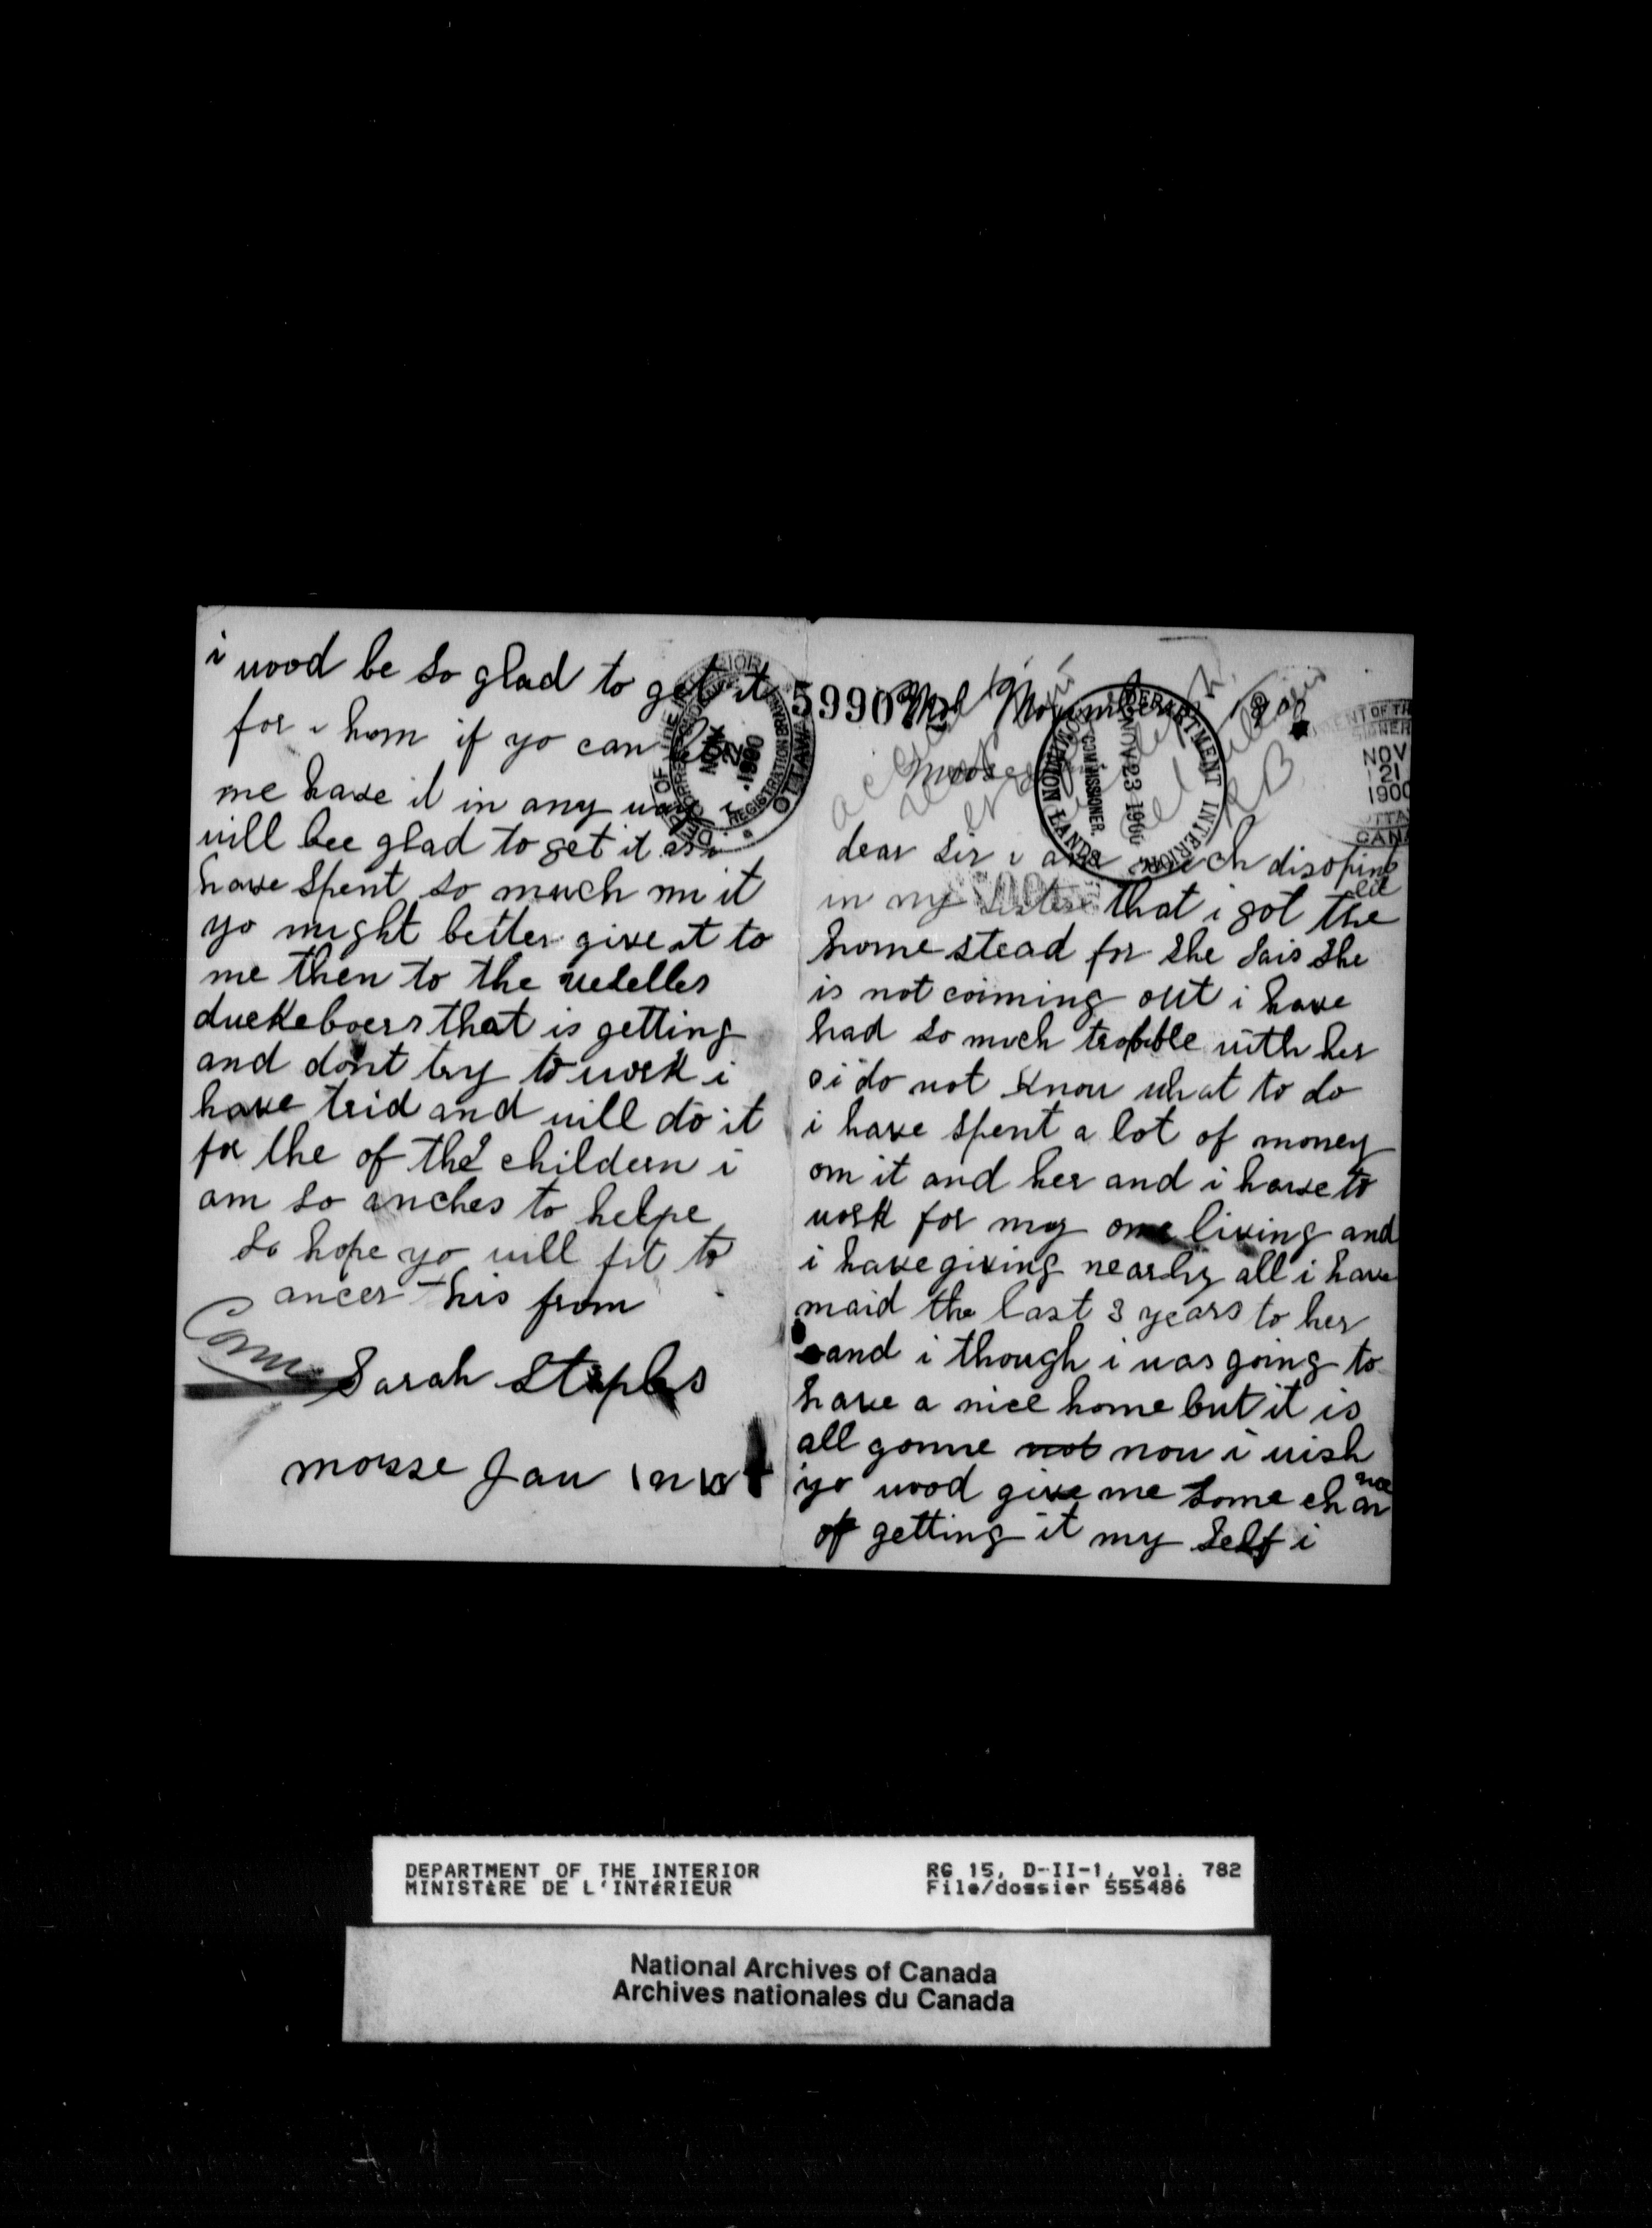 59903
November 19
Moose
dear sir i am much disopint
ed
in my sister that i got the
home stead for she sais she
is not coiming out i have
had so much trobble with her
i do not know what to do
i have spent a lot of money
on it and her and i have to
work for my one living and
i have giving nearly all i have
maid the last 3 years to her
and i though i was going to
have a nice home but it is
all gonne not now i wish
yo wood give me some chan
nce
of getting it my self i
i wood be so glad to get it
for i hom if yo can
me have it in any way i
will bee glad to get it as i
have spent so much on it
yo might better give it to
me then to the
duckeboers that is getting
and dont try to work i
have trid and will do it
for the of the childern i
am so anches to helpe
so hope yo will fit to
ancer this from
Com
Sarah Staples
mosse Jau
DEPARTMENT INTERIOR
COMMISSIONER.
NOV 23 1900
DOMINION LANDS
NOV
21
1900
OTTAWA
CANA
NOV
22
1900
REGISTRATION BRANCH
OTTAWA
DEPARTMENT OF THE INTERIOR
MINISTÈRE DE L'INTÉRIEUR
RG 15, D-II-1, vol. 782
File/dossier 555486
National Archives of Canada
Archives nationales du Canada